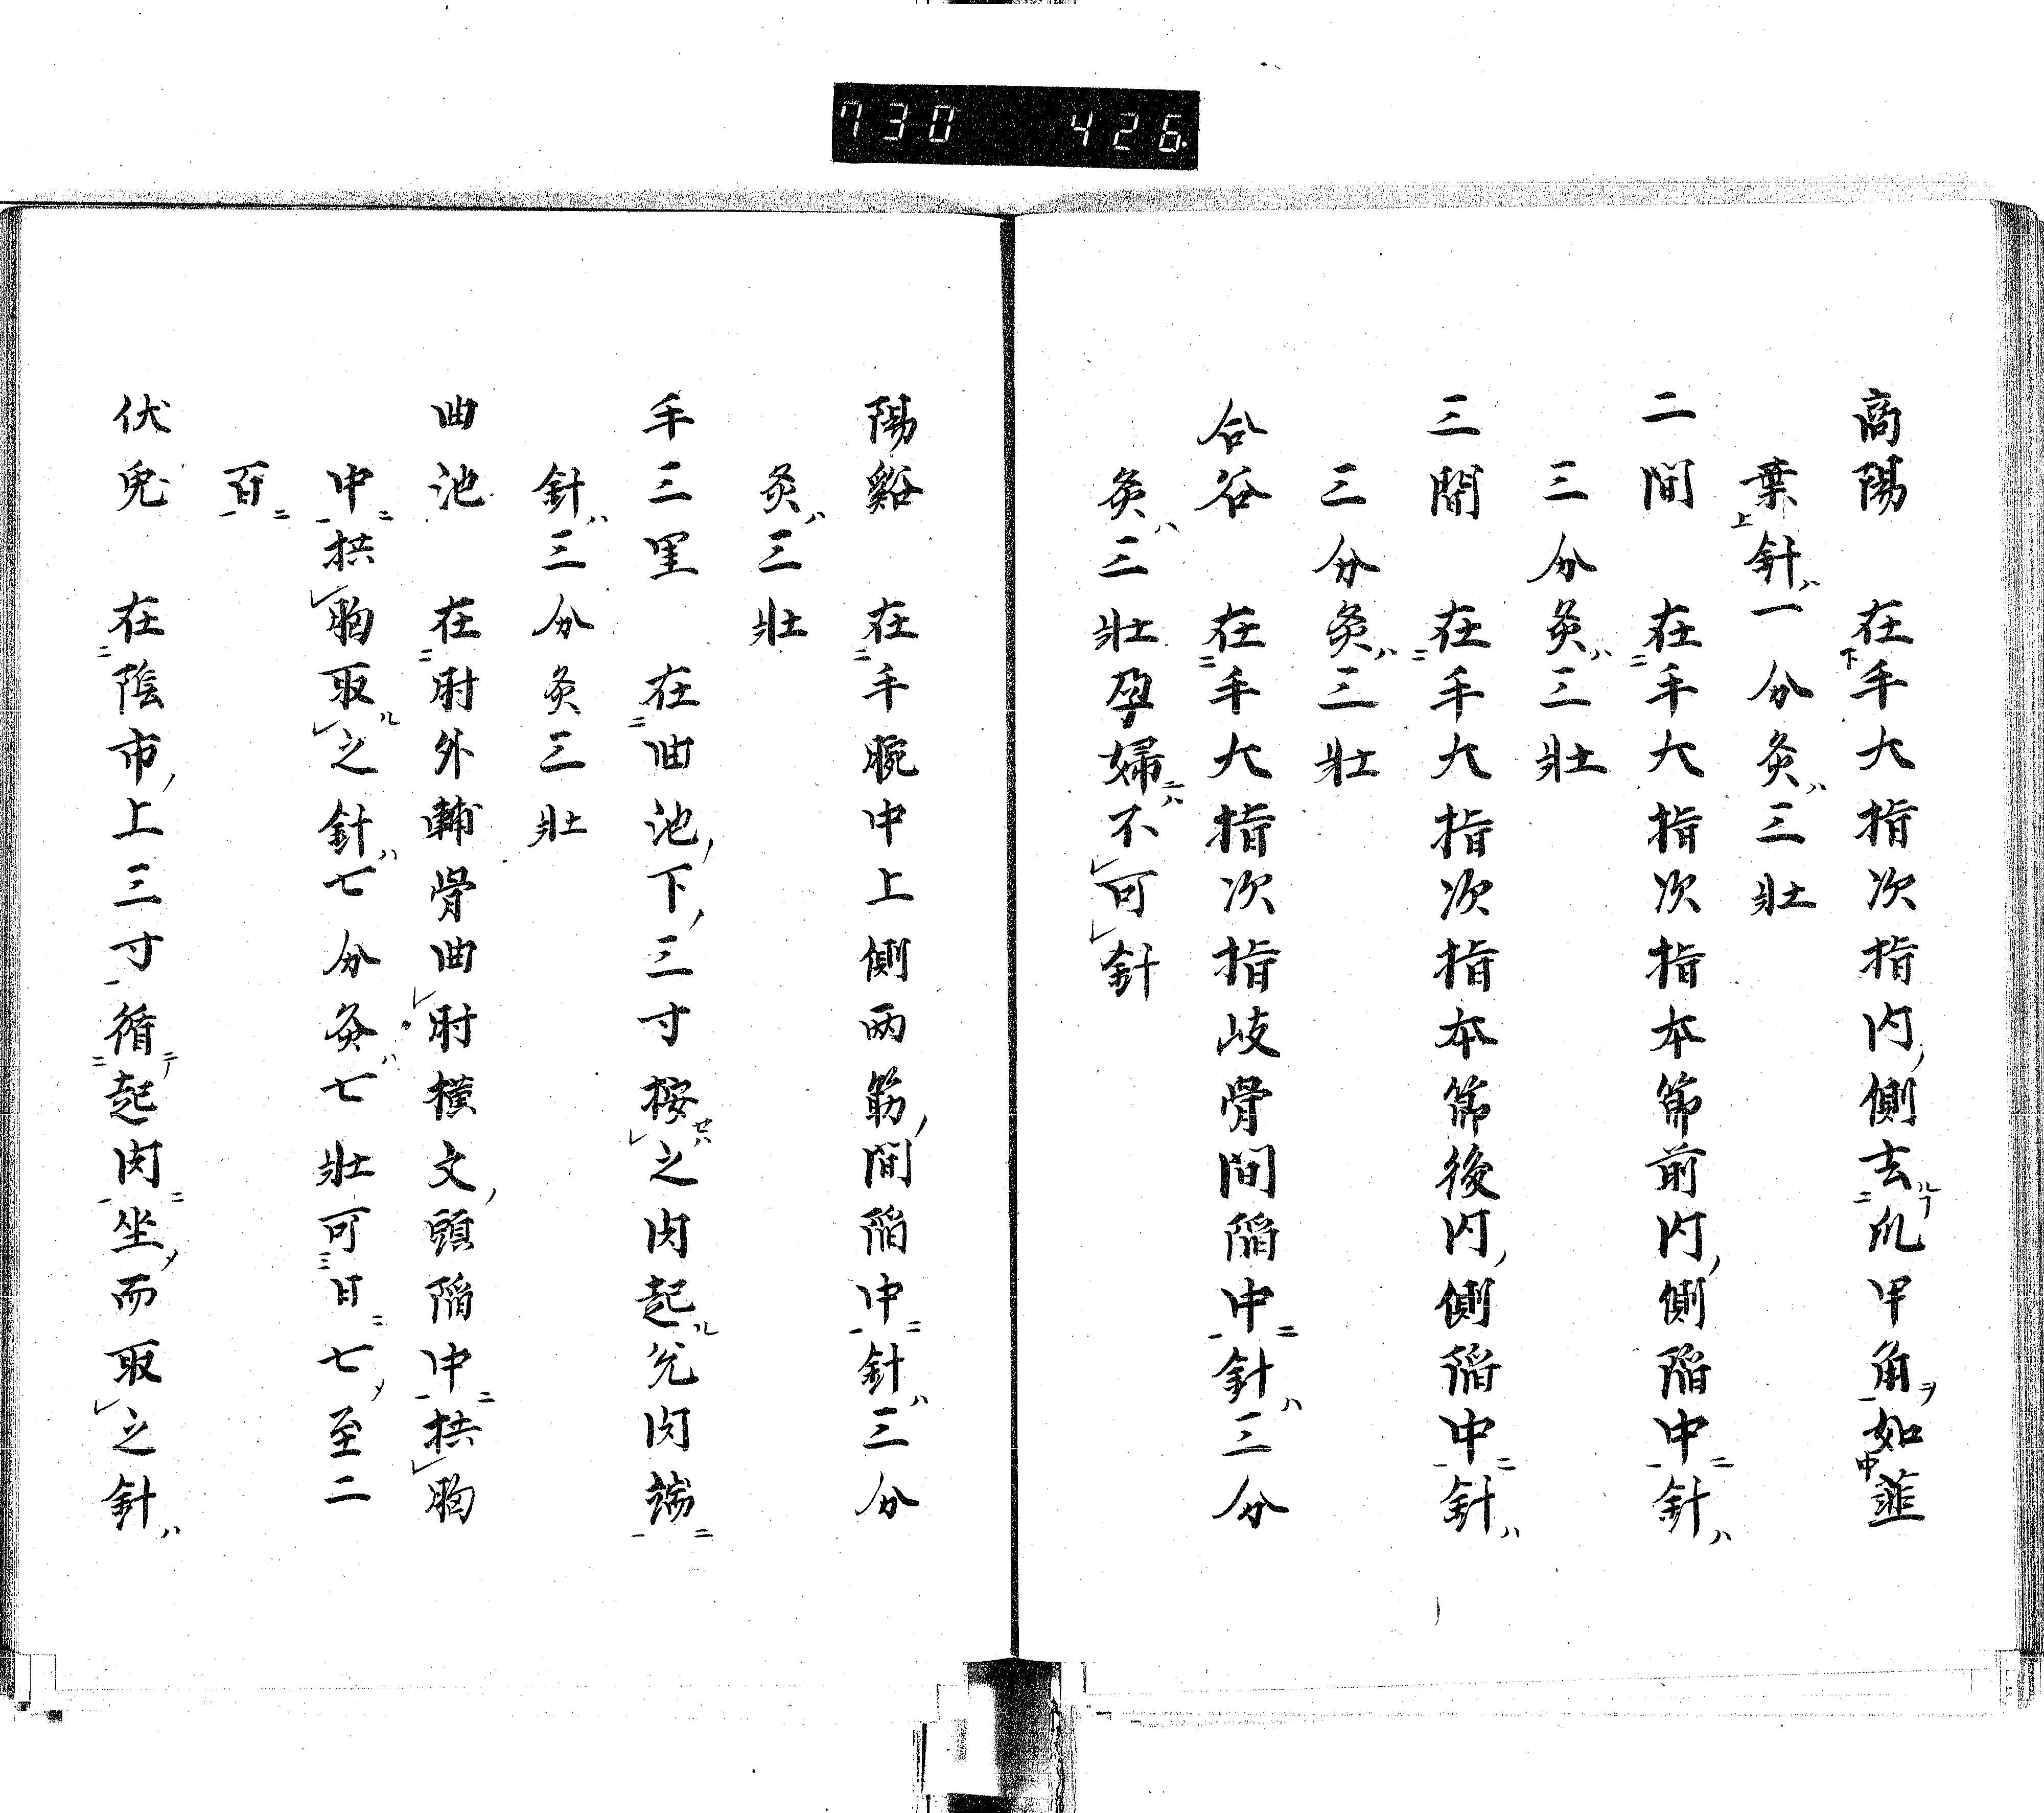 730 426
商陽 在手大指次指内側去爪甲角如韮
葉針一分灸三壯
二間 在手大指次指本節前内側陷中針
三分灸三壯
三間 在手大指次指本節後内側陷中針
三分灸三壯
合谷 在手大指次指岐骨間陷中針三分
灸三壯孕婦不可針
陽谿 在手腕中上側两筋間陷中針三分
灸三壯
手三里 在曲池下三寸按之肉起兊肉端
針三分灸三壯
曲池 在肘外輔骨曲肘橫文頭陷中拱胸
中拱胸取之針七分灸七壯可日七至二
百
伏兎 在陰市上三寸循起肉坐而取之針